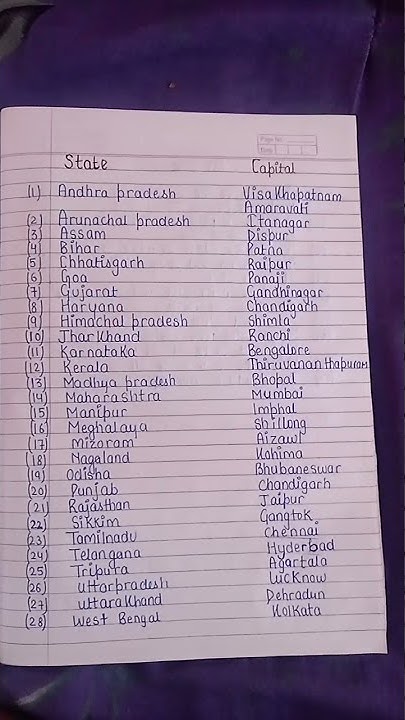 Page No.
Date
State Capital
(1) Andhra pradesh Visakhapatnam
Amaravati
(2) Arunachal pradesh Itanagar
(3) Assam Dispur
(4) Bihar Patna
(5) Chhatisgarh Raipur
(6) Goa Panaji
(7) Gujarat Gandhinagar
(8) Haryana Chandigarh
(9) Himachal pradesh Shimla
(10) Jharkhand Ranchi
(11) Karnataka Bengalore
(12) Kerala Thiruvananthapuram
(13) Madhya pradesh Bhopal
(14) Maharashtra Mumbai
(15) Manipur Imphal
(16) Meghalaya Shillong
(17) Mizoram Aizawl
(18) Nagaland Kohima
(19) Odisha Bhubaneswar
(20) Punjab Chandigarh
(21) Rajasthan Jaipur
(22) Sikkim Gangtok
(23) Tamilnadu Chennai
(24) Telangana Hyderbad
(25) Tripura Agartala
(26) uttarpradesh Lucknow
(27) uttarakhand Dehradun
(28) West Bengal Kolkata